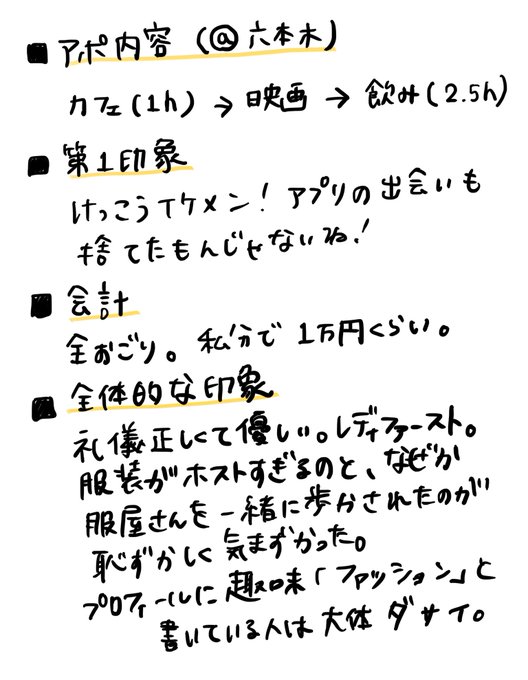 ■ アポ内容 (@六本木)
カフェ(1h) → 映画 → 飲み(2.5h)
■ 第1印象
けっこうイケメン! アプリの出会いも
捨てたもんじゃないね!
■ 会計
全おごり。私分で1万円くらい。
■ 全体的な印象
礼儀正しくて優しい。レディファースト。
服装がホストすぎるのと、なぜか
服屋さんを一緒に歩かされたのが
恥ずかしく気まずかった。
プロフィールに趣味「ファッション」と
書いている人は大体ダサイ。